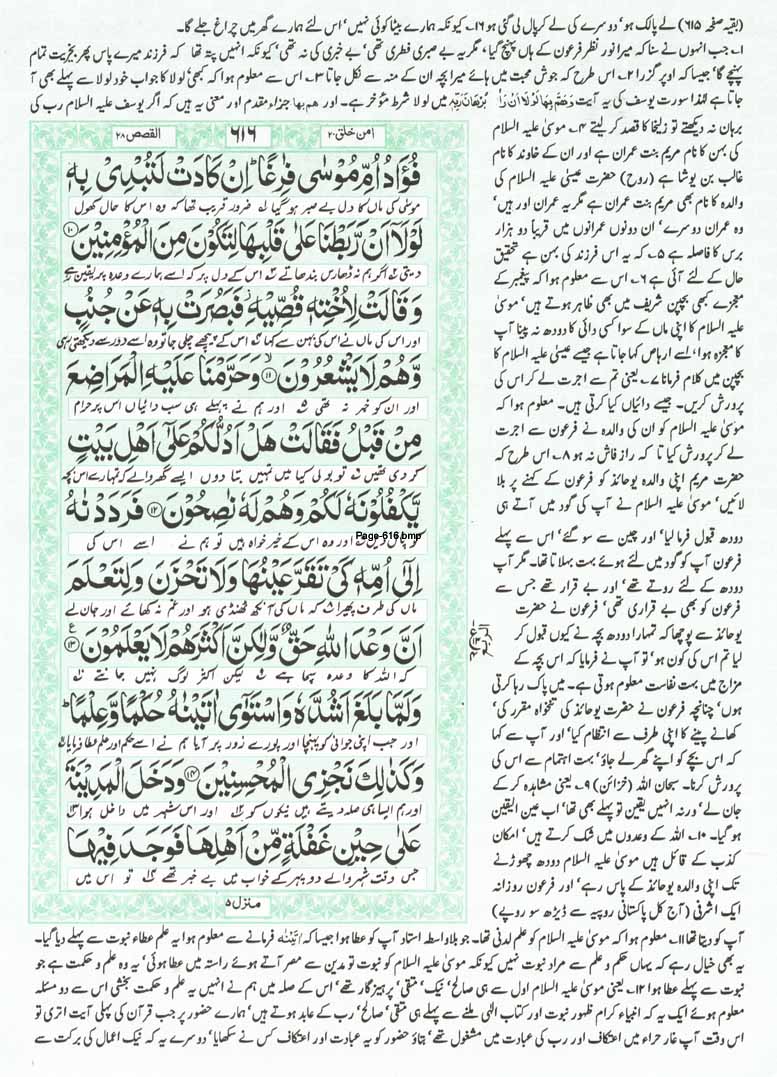 (بقیہ صفحہ ۶۱۵) لے پالک ہو، دوسرے کی لے کر پال لی گئی ہو ۱۶۔ کیونکہ ہمارے بیٹا کوئی نہیں، اس لئے ہمارے گھر میں چراغ جلے گا۔
۱۔ جب انہوں نے سنا کہ میرا نور نظر فرعون کے ہاں پہنچ گیا، مگر یہ بے صبری فطری تھی، بے خبری کی نہ تھی، کیونکہ انہیں پتہ تھا کہ فرزند میرے پاس پھر بخیریت تمام
پہنچے گا، جیسا کہ اوپر گزرا ۲۔ اس طرح کہ جوش محبت میں ہائے میرا بچہ ان کے منہ سے نکل جاتا ۳۔ اس سے معلوم ہوا کہ کبھی لولا کا جواب خود لولا سے پہلے بھی آ
جاتا ہے لہٰذا سورت یوسف کی یہ آیت وَهَمَّ بِهَا لَوْلَا اَنْ رَّاٰ بُرْهَانَ رَبِّهٖ میں لولا شرط مؤخر ہے۔ اور هم بها جزاء مقدم اور معنی یہ ہیں کہ اگر یوسف علیہ السلام رب کی
برہان نہ دیکھتے تو زلیخا کا قصد کر لیتے ۴۔ موسیٰ علیہ السلام
کی بہن کا نام مریم بنت عمران ہے اور ان کے خاوند کا نام
غالب بن یوشا ہے (روح) حضرت عیسیٰ علیہ السلام کی
والدہ کا نام بھی مریم بنت عمران ہے مگر یہ عمران اور ہیں،
وہ عمران دوسرے، ان دونوں عمرانوں میں قریباً دو ہزار
برس کا فاصلہ ہے ۵۔ کہ یہ اس فرزند کی بہن ہے تحقیق
حال کے لئے آئی ہے ۶۔ اس سے معلوم ہوا کہ پیغمبر کے
معجزے کبھی بچپن شریف میں بھی ظاہر ہوتے ہیں، موسیٰ
علیہ السلام کا اپنی ماں کے سوا کسی دائی کا دودھ نہ پینا آپ
کا معجزہ ہوا، اسے ارہاص کہا جاتا ہے جیسے عیسیٰ علیہ السلام کا
بچپن میں کلام فرمانا ۷۔ یعنی تم سے اجرت لے کر اس کی
پرورش کریں۔ جیسے دائیاں کیا کرتی ہیں۔ معلوم ہوا کہ
موسیٰ علیہ السلام کو ان کی والدہ نے فرعون سے اجرت
لے کر پرورش کیا تا کہ راز فاش نہ ہو ۸۔ اس طرح کہ
حضرت مریم اپنی والدہ یوحانذ کو فرعون کے کہنے پر بلا
لائیں، موسیٰ علیہ السلام نے آپ کی گود میں آتے ہی
دودھ قبول فرما لیا، اور چین سے سو گئے، اس سے پہلے
فرعون آپ کو گود میں لئے ہوئے بہت بہلاتا تھا۔ مگر آپ
دودھ کے لئے روتے تھے، اور بے قرار تھے جس سے
فرعون کو بھی بے قراری تھی، فرعون نے حضرت
یوحانذ سے پوچھا کہ تمہارا دودھ بچہ نے کیوں قبول کر
لیا تم اس کی کون ہو، تو آپ نے فرمایا کہ اس بچہ کے
مزاج میں بہت نفاست معلوم ہوتی ہے۔ میں پاک رہا کرتی
ہوں، چنانچہ فرعون نے حضرت یوحانذ کی تنخواہ مقرر کی،
کھانے پینے کا اپنی طرف سے انتظام کیا، اور آپ سے کہا
کہ اس بچے کو اپنے گھر لے جاؤ، بہت اہتمام سے اس کی
پرورش کرنا۔ سبحان اللہ (خزائن) ۹۔ یعنی مشاہدہ کر کے
جان لے، ورنہ انہیں یقین تو پہلے بھی تھا، اب عین الیقین
ہو گیا۔ ۱۰۔ اللہ کے وعدوں میں شک کرتے ہیں، امکان
کذب کے قائل ہیں موسیٰ علیہ السلام دودھ چھوڑنے
تک اپنی والدہ یوحانذ کے پاس رہے، اور فرعون روزانہ
ایک اشرفی (آج کل پاکستانی روپیہ سے ڈیڑھ سو روپے)
القصص ۲۸
۶۱۶
امن خلق ۲۰
فُؤَادُ اُمِّ مُوْسٰى فٰرِغًا ؕ اِنْ كَادَتْ لَتُبْدِىْ بِهٖ
موسیٰ کی ماں کا دل بے صبر ہو گیا ضرور قریب تھا کہ وہ اس کا حال کھول
لَوْلَاۤ اَنْ رَّبَطْنَا عَلٰى قَلْبِهَا لِتَكُوْنَ مِنَ الْمُؤْمِنِيْنَ ۝۱۰
دیتی اگر ہم نہ ڈھارس بندھاتے اس کے دل پر کہ اسے ہمارے وعدہ پر یقین رہے
وَقَالَتْ لِاُخْتِهٖ قُصِّيْهِ ۫ فَبَصُرَتْ بِهٖ عَنْ جُنُبٍ
اور اس کی ماں نے اس کی بہن سے کہا اس کے پیچھے چلی جا تو وہ اسے دور سے دیکھتی رہی
وَّهُمْ لَا يَشْعُرُوْنَ ۝۱۱ وَحَرَّمْنَا عَلَيْهِ الْمَرَاضِعَ
اور ان کو خبر نہ تھی اور ہم نے پہلے ہی سب دائیاں اس پر حرام
مِنْ قَبْلُ فَقَالَتْ هَلْ اَدُلُّكُمْ عَلٰۤى اَهْلِ بَيْتٍ
کر دی تھیں تو بولی کیا میں تمہیں بتا دوں ایسے گھر والے کہ تمہارے اس بچہ
يَّكْفُلُوْنَهٗ لَكُمْ وَهُمْ لَهٗ نٰصِحُوْنَ ۝۱۲ فَرَدَدْنٰهُ
کو پال دیں اور وہ اس کے خیر خواہ ہیں تو ہم نے اسے اس کی
Page-616.bmp
اِلٰۤى اُمِّهٖ كَىْ تَقَرَّ عَيْنُهَا وَلَا تَحْزَنَ وَلِتَعْلَمَ
ماں کی طرف پھیرا کہ ماں کی آنکھ ٹھنڈی ہو اور غم نہ کھائے اور جان لے
اَنَّ وَعْدَ اللّٰهِ حَقٌّ وَّلٰكِنَّ اَكْثَرَهُمْ لَا يَعْلَمُوْنَ ۝۱۳
کہ اللہ کا وعدہ سچا ہے لیکن اکثر لوگ نہیں جانتے
وَلَمَّا بَلَغَ اَشُدَّهٗ وَاسْتَوٰۤى اٰتَيْنٰهُ حُكْمًا وَّعِلْمًا ؕ
اور جب اپنی جوانی کو پہنچا اور پورے زور پر آیا ہم نے اسے حکم اور علم عطا فرمایا
وَكَذٰلِكَ نَجْزِى الْمُحْسِنِيْنَ ۝۱۴ وَدَخَلَ الْمَدِيْنَةَ
اور ہم ایسا ہی صلہ دیتے ہیں نیکوں کو اور اس شہر میں داخل ہوا
عَلٰى حِيْنِ غَفْلَةٍ مِّنْ اَهْلِهَا فَوَجَدَ فِيْهَا
جس وقت شہر والے دوپہر کے خواب میں بے خبر تھے تو اس میں
منزل ۵
آپ کو دیتا تھا ۱۱۔ معلوم ہوا کہ موسیٰ علیہ السلام کو علم لدنی تھا۔ جو بلاواسطہ استاد آپ کو عطا ہوا جیسا کہ اٰتَيْنٰهُ فرمانے سے معلوم ہوا یہ علم عطاء نبوت سے پہلے دیا گیا۔
یہ بھی خیال رہے کہ یہاں حکم و علم سے مراد نبوت نہیں کیونکہ موسیٰ علیہ السلام کو نبوت تو مدین سے مصر آتے ہوئے راستہ میں عطا ہوئی، یہ وہ علم و حکمت ہے جو
نبوت سے پہلے عطا ہوا ۱۲۔ یعنی موسیٰ علیہ السلام اول سے ہی صالح، نیک، متقی، پرہیزگار تھے، اس کے صلہ میں ہم نے انہیں یہ علم و حکمت بخشی اس سے دو مسئلہ
معلوم ہوئے ایک یہ کہ انبیاء کرام ظہور نبوت اور کتاب الٰہی ملنے سے پہلے ہی متقی، صالح، رب کے عابد ہوتے ہیں، ہمارے حضور پر جب قرآن کی پہلی آیت اتری تو
اس وقت آپ غار حراء میں اعتکاف اور رب کی عبادت میں مشغول تھے، بتاؤ حضور کو یہ عبادت اور اعتکاف کس نے سکھایا، دوسرے یہ کہ نیک اعمال کی برکت سے